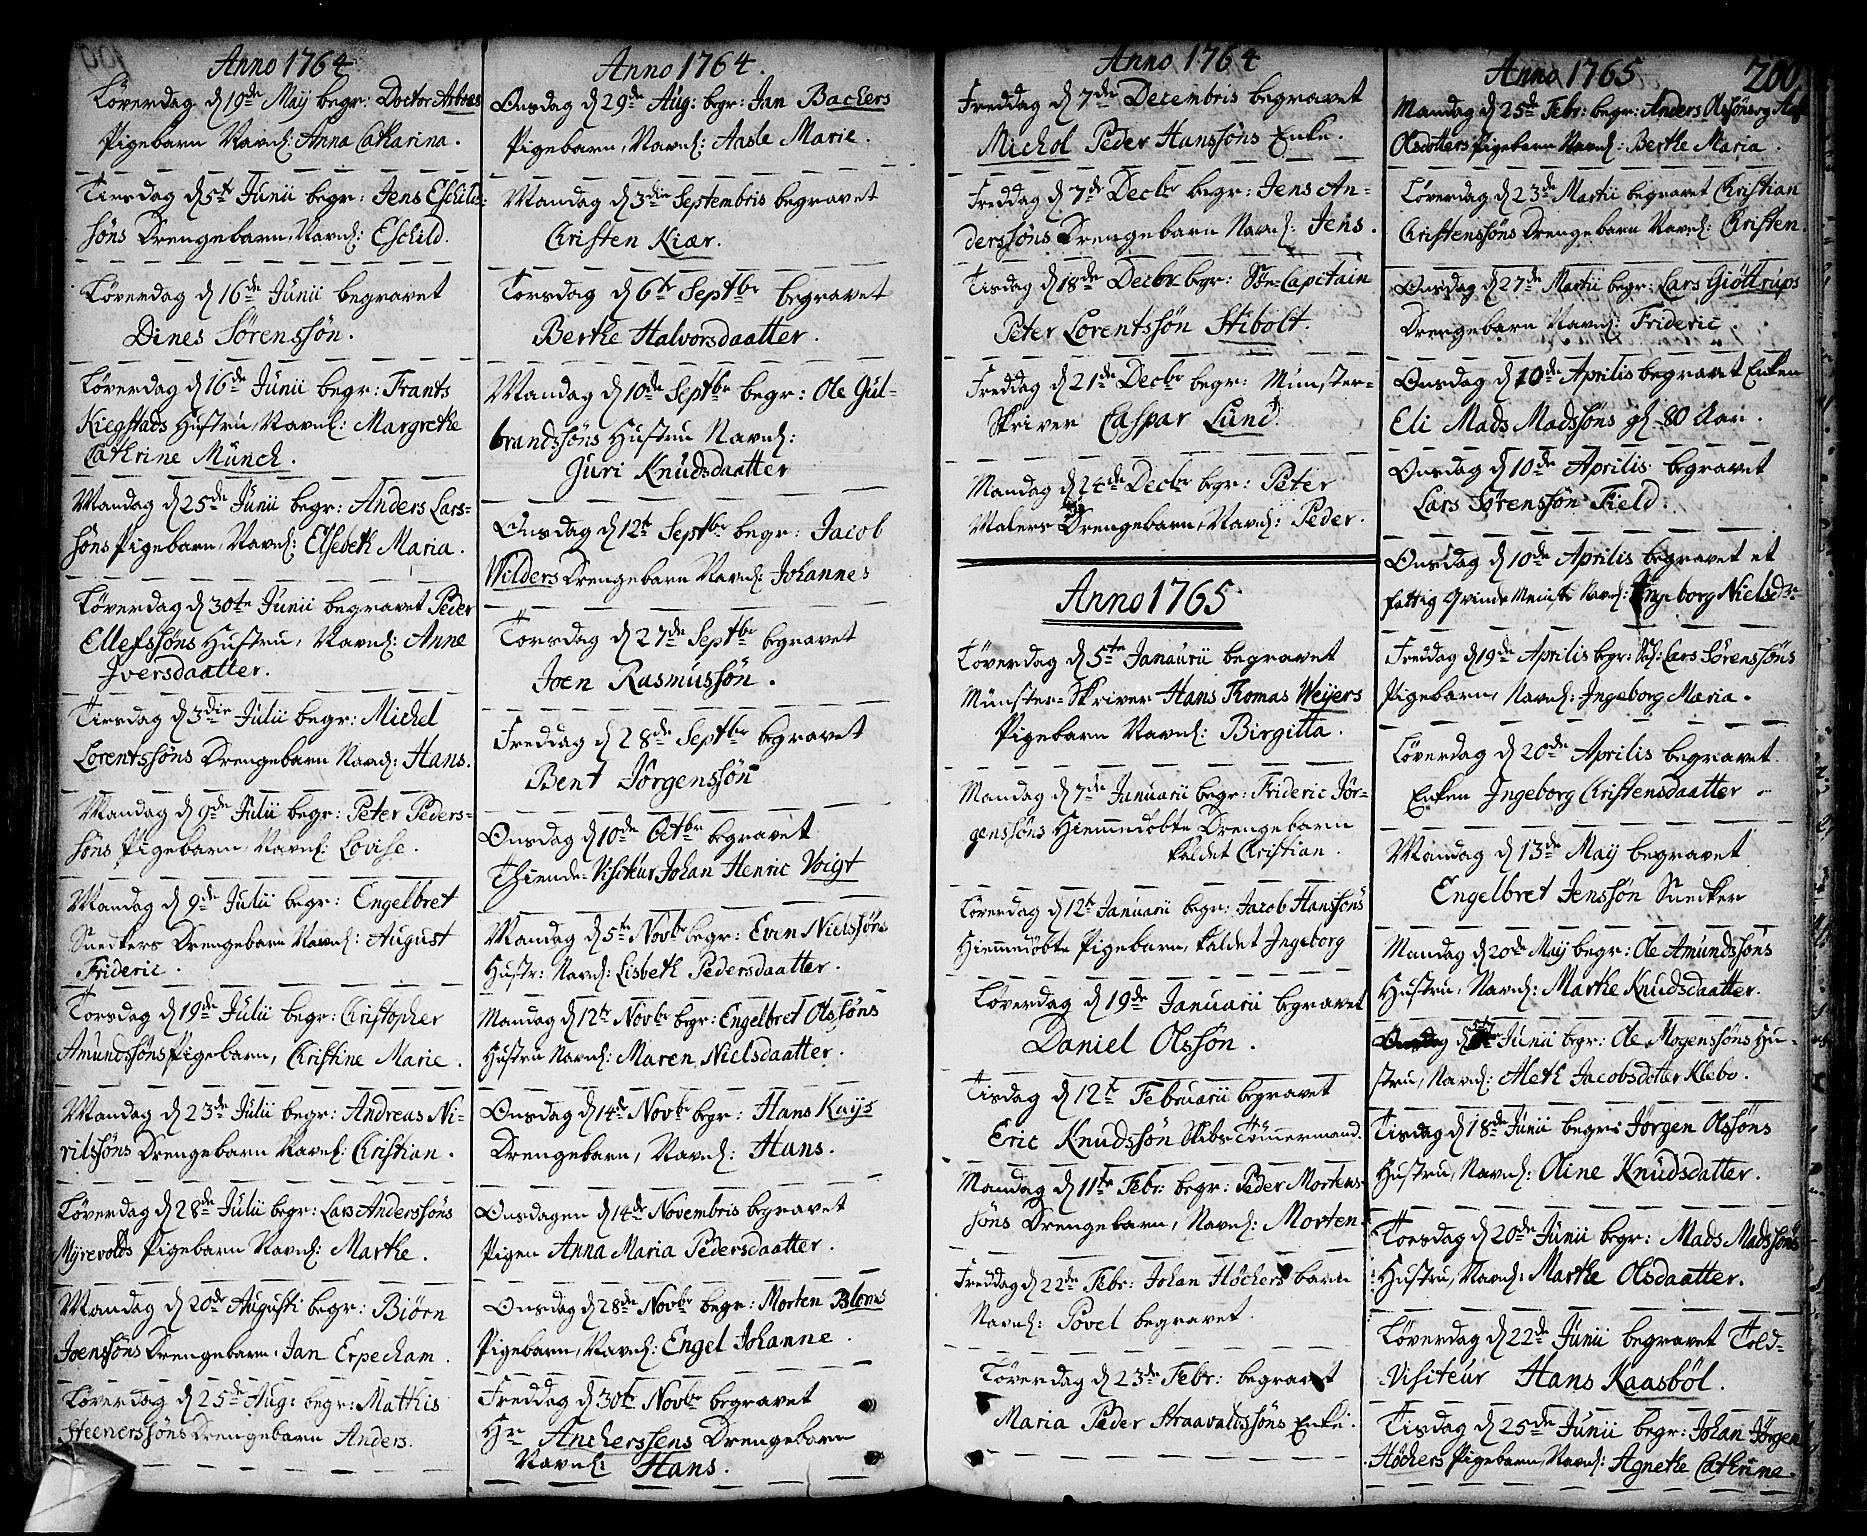 Anno 1764
Løverdag d 19de Maÿ begr: Doctor Arboes
Pigebarn Navnl: Anna Catharina.
Tirsdag d 5te Junii begr: Jens Eschils-
søns Drengebarn, Navnl: Eschild.
Løverdag d 16de Junii begravet
Dines Sörenssön.
Løverdag d 16de Junii begr: Frants
Kiegstads Hustru, Navnl: Margrethe
Cathrine Münch.
Mandag d 25de Junii begr: Anders Lars-
søns Pigebarn, Navnl: Elsebeth Maria.
Løverdag d 30te Junii begravet Peder
Ellefssøns Hustru, Navnl: Anne
Iversdaatter.
Tirsdag d 3die Julii begr: Michel
Lorentssøns Drengebarn Navnl: Hans.
Mandag d 9de Julii begr: Peter Peders-
søns Pigebarn, Navnl: Lovise.
Mandag d 9de Julii begr: Engelbret
Snedkers Drengebarn Navnl: August
Frideric.
Torsdag d 19de Julii begr: Christopher
Amundssøns Pigebarn, Christine Marie.
Mandag d 23de Julii begr: Andreas Ni-
rilssøns Drengebarn Navnl: Christian.
Løverdag d 28de Julii begr: Lars Anderssøns
Myrevolds Pigebarn Navnl: Marthe.
Mandag d 20de Augusti begr: Biörn
Joenssøns Drengebarn, Jan Erpecham.
Løverdag d 25de Aug: begr: Mathis
Steenerssøns Drengebarn Anders.
Anno 1764.
Onsdag d 29de Aug: begr: Jan Bachers
Pigebarn, Navnl: Aasle Marie.
Mandag d 3die Septembris begravet
Christen Kiær.
Torsdag d 6te Septbr begravet
Berthe Halvorsdaatter.
Mandag d 10de Septbr begr: Ole Gul-
brandssøns Hustru Navnl:
Guri Knudsdaatter
Onsdag d 12te Septbr begr: Jacob
Wilders Drengebarn Navnl: Johannes
Torsdag d 27de Septbr begravet
Joen Rasmussøn.
Freddag d 28de Septbr begravet
Bent Jörgenssøn
Onsdag d 10de Octbr begravet
Thiende-Visiteur Johan Henric Voigt
Mandag d 5te Novbr begr: Even Nielssøns
Hustr: Navnl: Lisbeth Pedersdaatter.
Mandag d 12te Novbr begr: Engelbret Olssøns
Hustru Navnl: Maren Nielsdaatter.
Onsdag d 14de Novbr begr: Hans Kuÿs
Drengebarn, Navnl: Hans.
Onsdagen d 14de Novembris begravet
Pigen Anna Maria Pedersdaatter.
Onsdag d 28de Novbr begr: Morten Bloms
Pigebarn, Navnl: Engel Johanne.
Freddag d 30te Novbr begravet
Hr Ancherssens Drengebarn
Navnl: Hans.
Anno 1764
Freddag d 7de Decembris begravet
Michol Peder Hanssøns Enke.
Freddag d 7de Decbr begr: Jens An-
derssøns Drengebarn Navnl: Jens.
Tisdag d 18de Decbr begr: Søe-Capitain
Peter Lorentssøn Stibolt.
Freddag d 21de Decbr begr: Munster-
Skriver Caspar Lund.
Mandag d 24de Decbr begr: Peter
Malers Drengebarn, Navnl: Peder.
Anno 1765
Løverdag d 5te Janaurii begravet
Münster-Skriver Hans Thomas Weÿers
Pigebarn Navnl: Birgitta.
Mandag d 7de Januarii begr: Frideric Jör-
genssøns Hiemmedøbte Drengebarn
kaldet Christian.
Løverdag d 12te Januarii begr: Jacob Hanssøns
Hiemmedøbte Pigebarn, kaldet Ingeborg
Løverdag d 19de Januarii begravet
Daniel Olssøn.
Tisdag d 12te Februarii begravet
Eric Knudssøn Skibs-Tømmermand.
Mandag d 11te Febr: begr: Peder Mortens-
søns Drengebarn, Navnl: Morten.
Freddag d 22de Febr: Johan Höchers barn
Navnl: Povel begravet.
Løverdag d 23de Febr: begravet
Maria Peder Straavaldssøns Enke.
Anno 1765
200
Mandag d 25de Febr: begr: Anders Olssøns og
Olsdotters Pigebarn Navnl: Berthe Maria.
Løverdag d 23de Martii begravet Christian
Christenssøns Drengebarn Navnl: Christen.
Onsdag d 27de Martii begr: Lars Giöttrups
Drengebarn Navnl: Frideric.
Onsdag d 10de Aprilis begravet Enken
Eli Mads Madssøns gl 80 Aar.
Onsdag d 10de Aprilis begravet
Lars Sørenssøn Field.
Onsdag d 10de Aprilis begravet et
fattig Qvinde Menische Navnl: Ingeborg Nielsdr
Freddag d 19de Aprilis begr: Lars Sørenssøns
Pigebarn, Navnl: Ingeborg Maria.
Løverdag d 20de Aprilis begravet
Enken Ingeborg Christensdaatter
Mandag d 13de May begravet
Engelbret Jenssøn Snedker
Mandag d 20de Maÿ begr: Ole Amundssøns
Hustru, Navnl: Marthe Knudsdaatter.
Onsdag d Junii begr: Ole Mogenssøns Hu-
stru, Navnl: Aleth Jacobsdotter Klebo.
Tisdag d 18de Junii begr: Jørgen Olssøns
Hustru, Navnl: Oline Knudsdatter.
Torsdag d 20de Junii begr: Mads Madssøns
Hustru, Navnl: Marthe Olsdaatter.
Løverdag d 22de Junii begravet Told-
Visiteur Hans Kaasbøl.
Tisdag d 25de Junii begr: Johan Jørgen
Höchers Pigebarn, Navnl: Agnethe Cathrine.